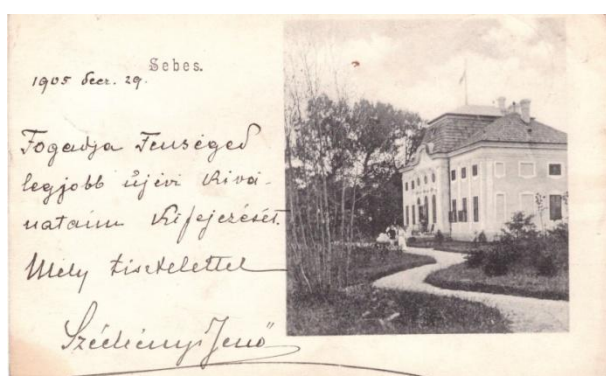 Sebes.
1905 decz. 29.
Fogadja Fenséged
legjobb újévi kivá-
nataim kifejezését.
Mély tisztelettel
Széchényi Jenő